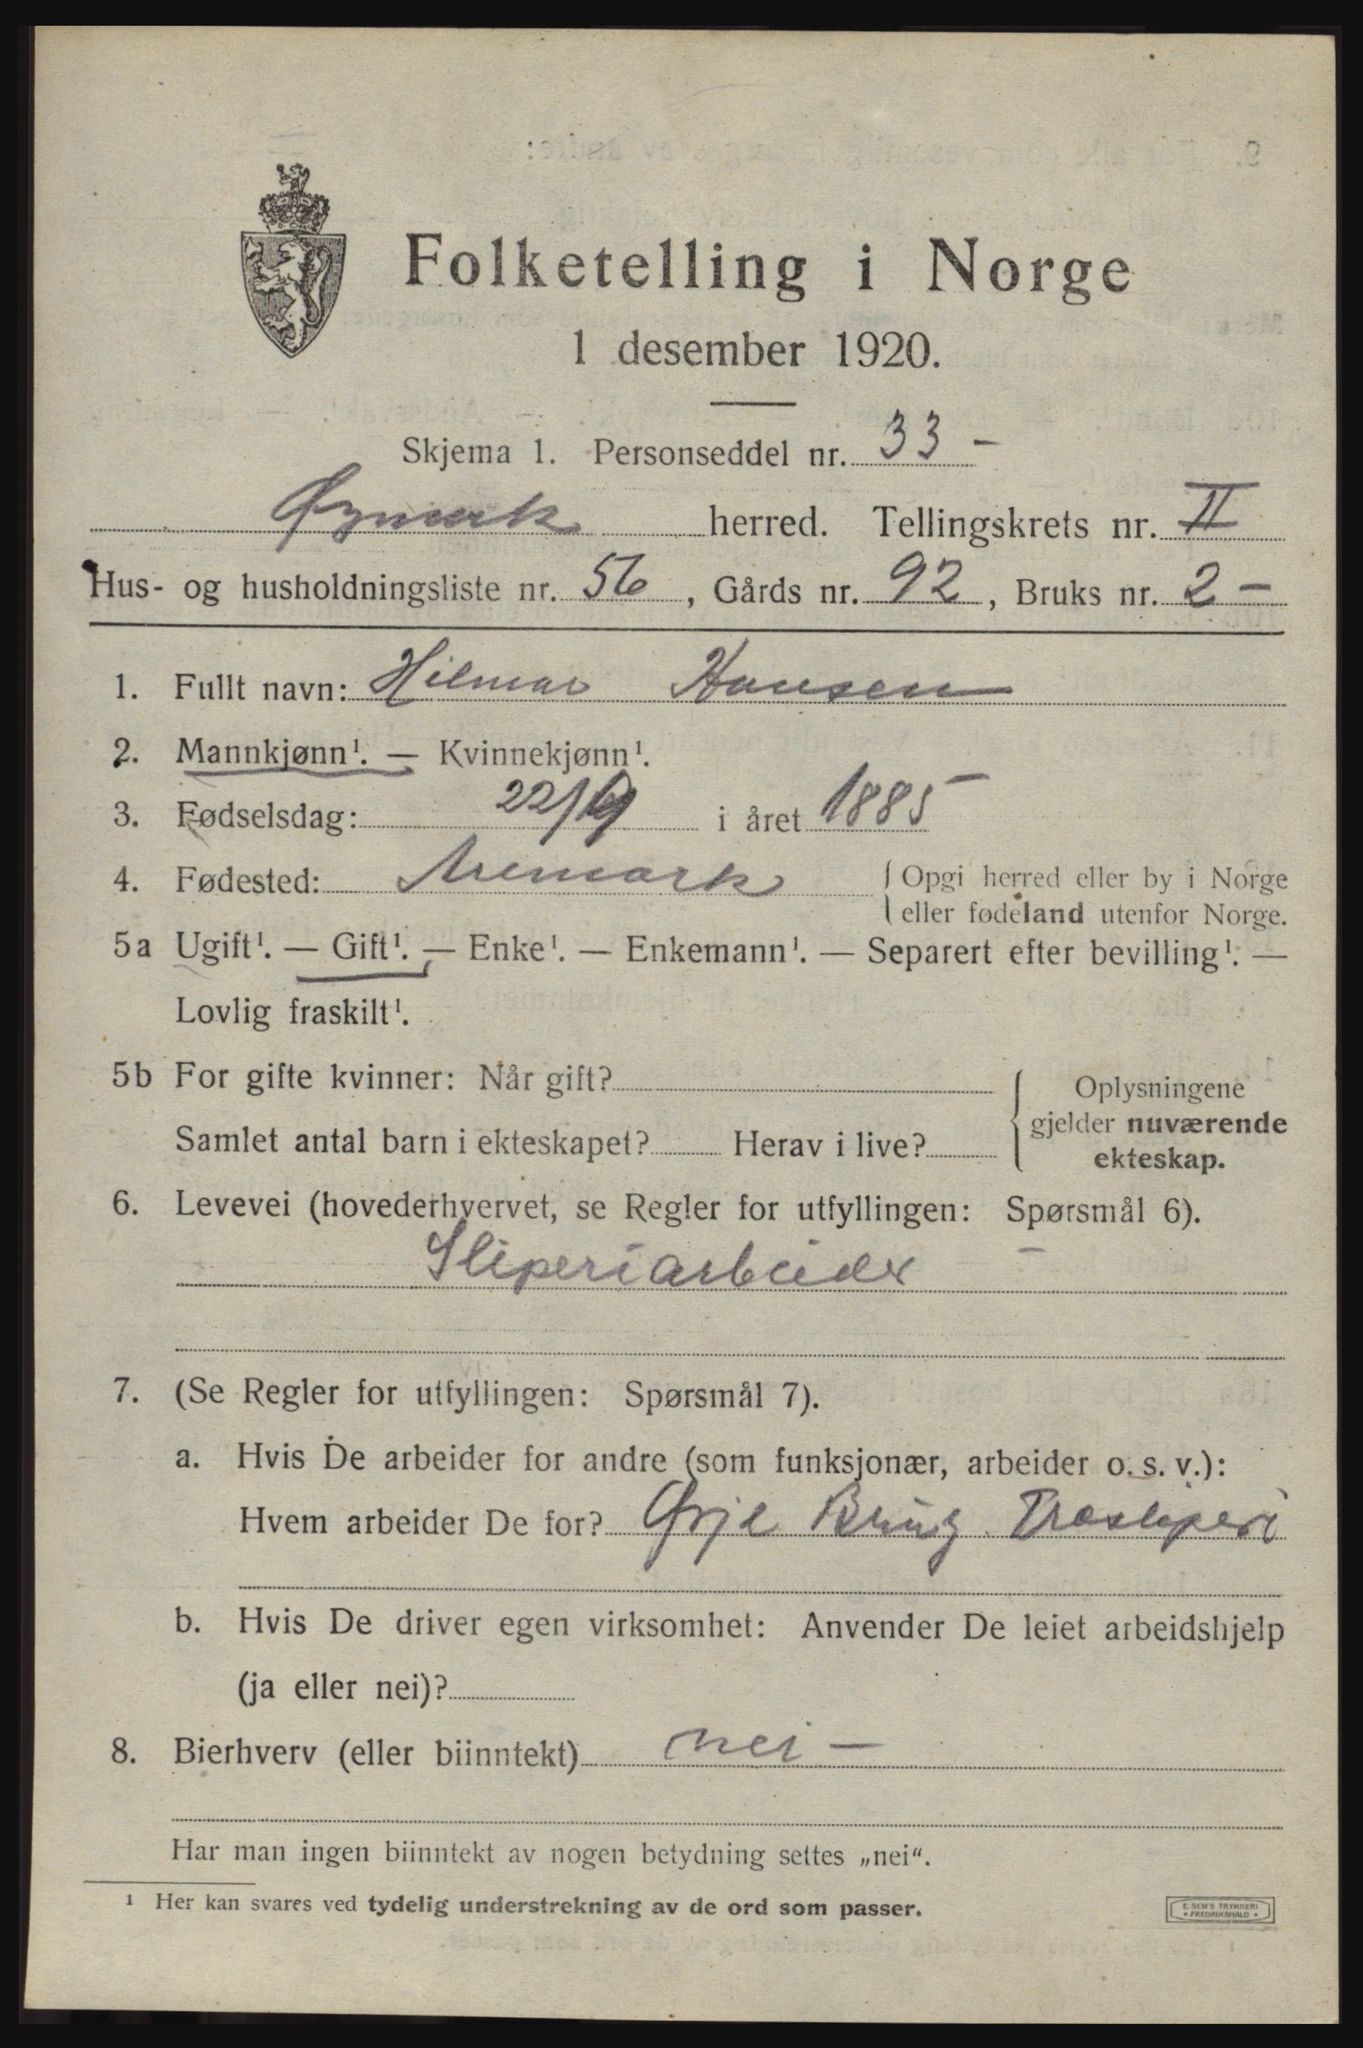 Folketelling i Norge
1 desember 1920.
Skjema 1. Personseddel nr. 33 –
Øymark herred. Tellingskrets nr. II
Hus- og husholdningsliste nr. 56, Gårds nr. 92, Bruks nr. 2 –
1. Fullt navn: Hilmar Hansen
2. Mannkjønn¹. — Kvinnekjønn¹.
3. Fødselsdag: 22/9 i året 1885 –
4. Fødested: Aremark { Opgi herred eller by i Norge
eller fødeland utenfor Norge.
5a Ugift¹. — Gift¹. — Enke¹. — Enkemann¹. — Separert efter bevilling¹. —
Lovlig fraskilt¹.
5b For gifte kvinner: Når gift?
Samlet antal barn i ekteskapet? Herav i live?
{ Oplysningene
gjelder nuværende
ekteskap.
6. Levevei (hovederhvervet, se Regler for utfyllingen: Spørsmål 6).
Sliperiarbeider –
7. (Se Regler for utfyllingen: Spørsmål 7).
a. Hvis De arbeider for andre (som funksjonær, arbeider o. s. v.):
Hvem arbeider De for? Ørje Brug Træsliperi
b. Hvis De driver egen virksomhet: Anvender De leiet arbeidshjelp
(ja eller nei)?
8. Bierhverv (eller biinntekt) nei –
Har man ingen biinntekt av nogen betydning settes „nei“.
¹ Her kan svares ved tydelig understrekning av de ord som passer.
E. SEM'S TRYKKERI
* FREDRIKSHALD *